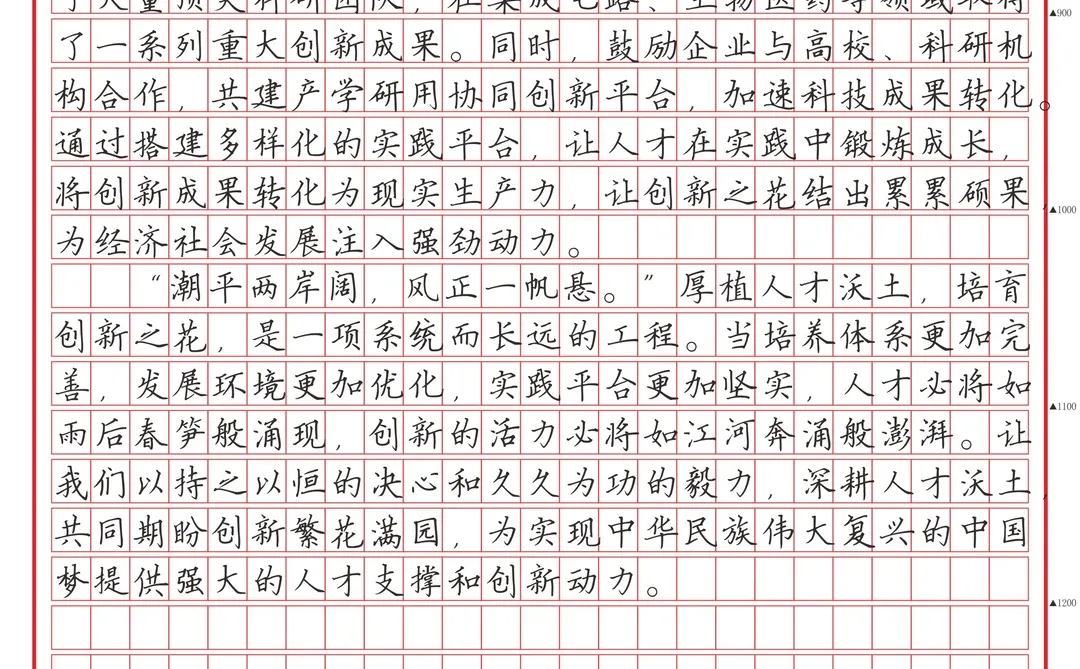 了大量顶尖科研团队，在集成电路、生物医药等领域取得
▲900
了一系列重大创新成果。同时，鼓励企业与高校、科研机
构合作，共建产学研用协同创新平台，加速科技成果转化。
通过搭建多样化的实践平台，让人才在实践中锻炼成长，
将创新成果转化为现实生产力，让创新之花结出累累硕果，
▲1000
为经济社会发展注入强劲动力。
“潮平两岸阔，风正一帆悬。”厚植人才沃土，培育
创新之花，是一项系统而长远的工程。当培养体系更加完
善，发展环境更加优化，实践平台更加坚实，人才必将如
▲1100
雨后春笋般涌现，创新的活力必将如江河奔涌般澎湃。让
我们以持之以恒的决心和久久为功的毅力，深耕人才沃土，
共同期盼创新繁花满园，为实现中华民族伟大复兴的中国
梦提供强大的人才支撑和创新动力。
▲1200